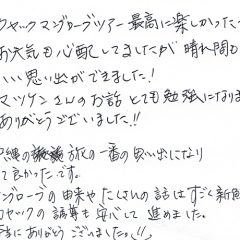 カヤックマングローブツアー最高に楽しかった
お天気も心配してましたが晴れ間も
いい思い出ができました!
マツケンさんのお話とても勉強になりま
ありがとうございました!!
沖縄の旅の一番の思い出になり
て良かったです。
ングローブの由来やたくさんの話はすごく新鮮
カヤックの誘導も安心して進めました。
ありがとうございましたっ(!!)